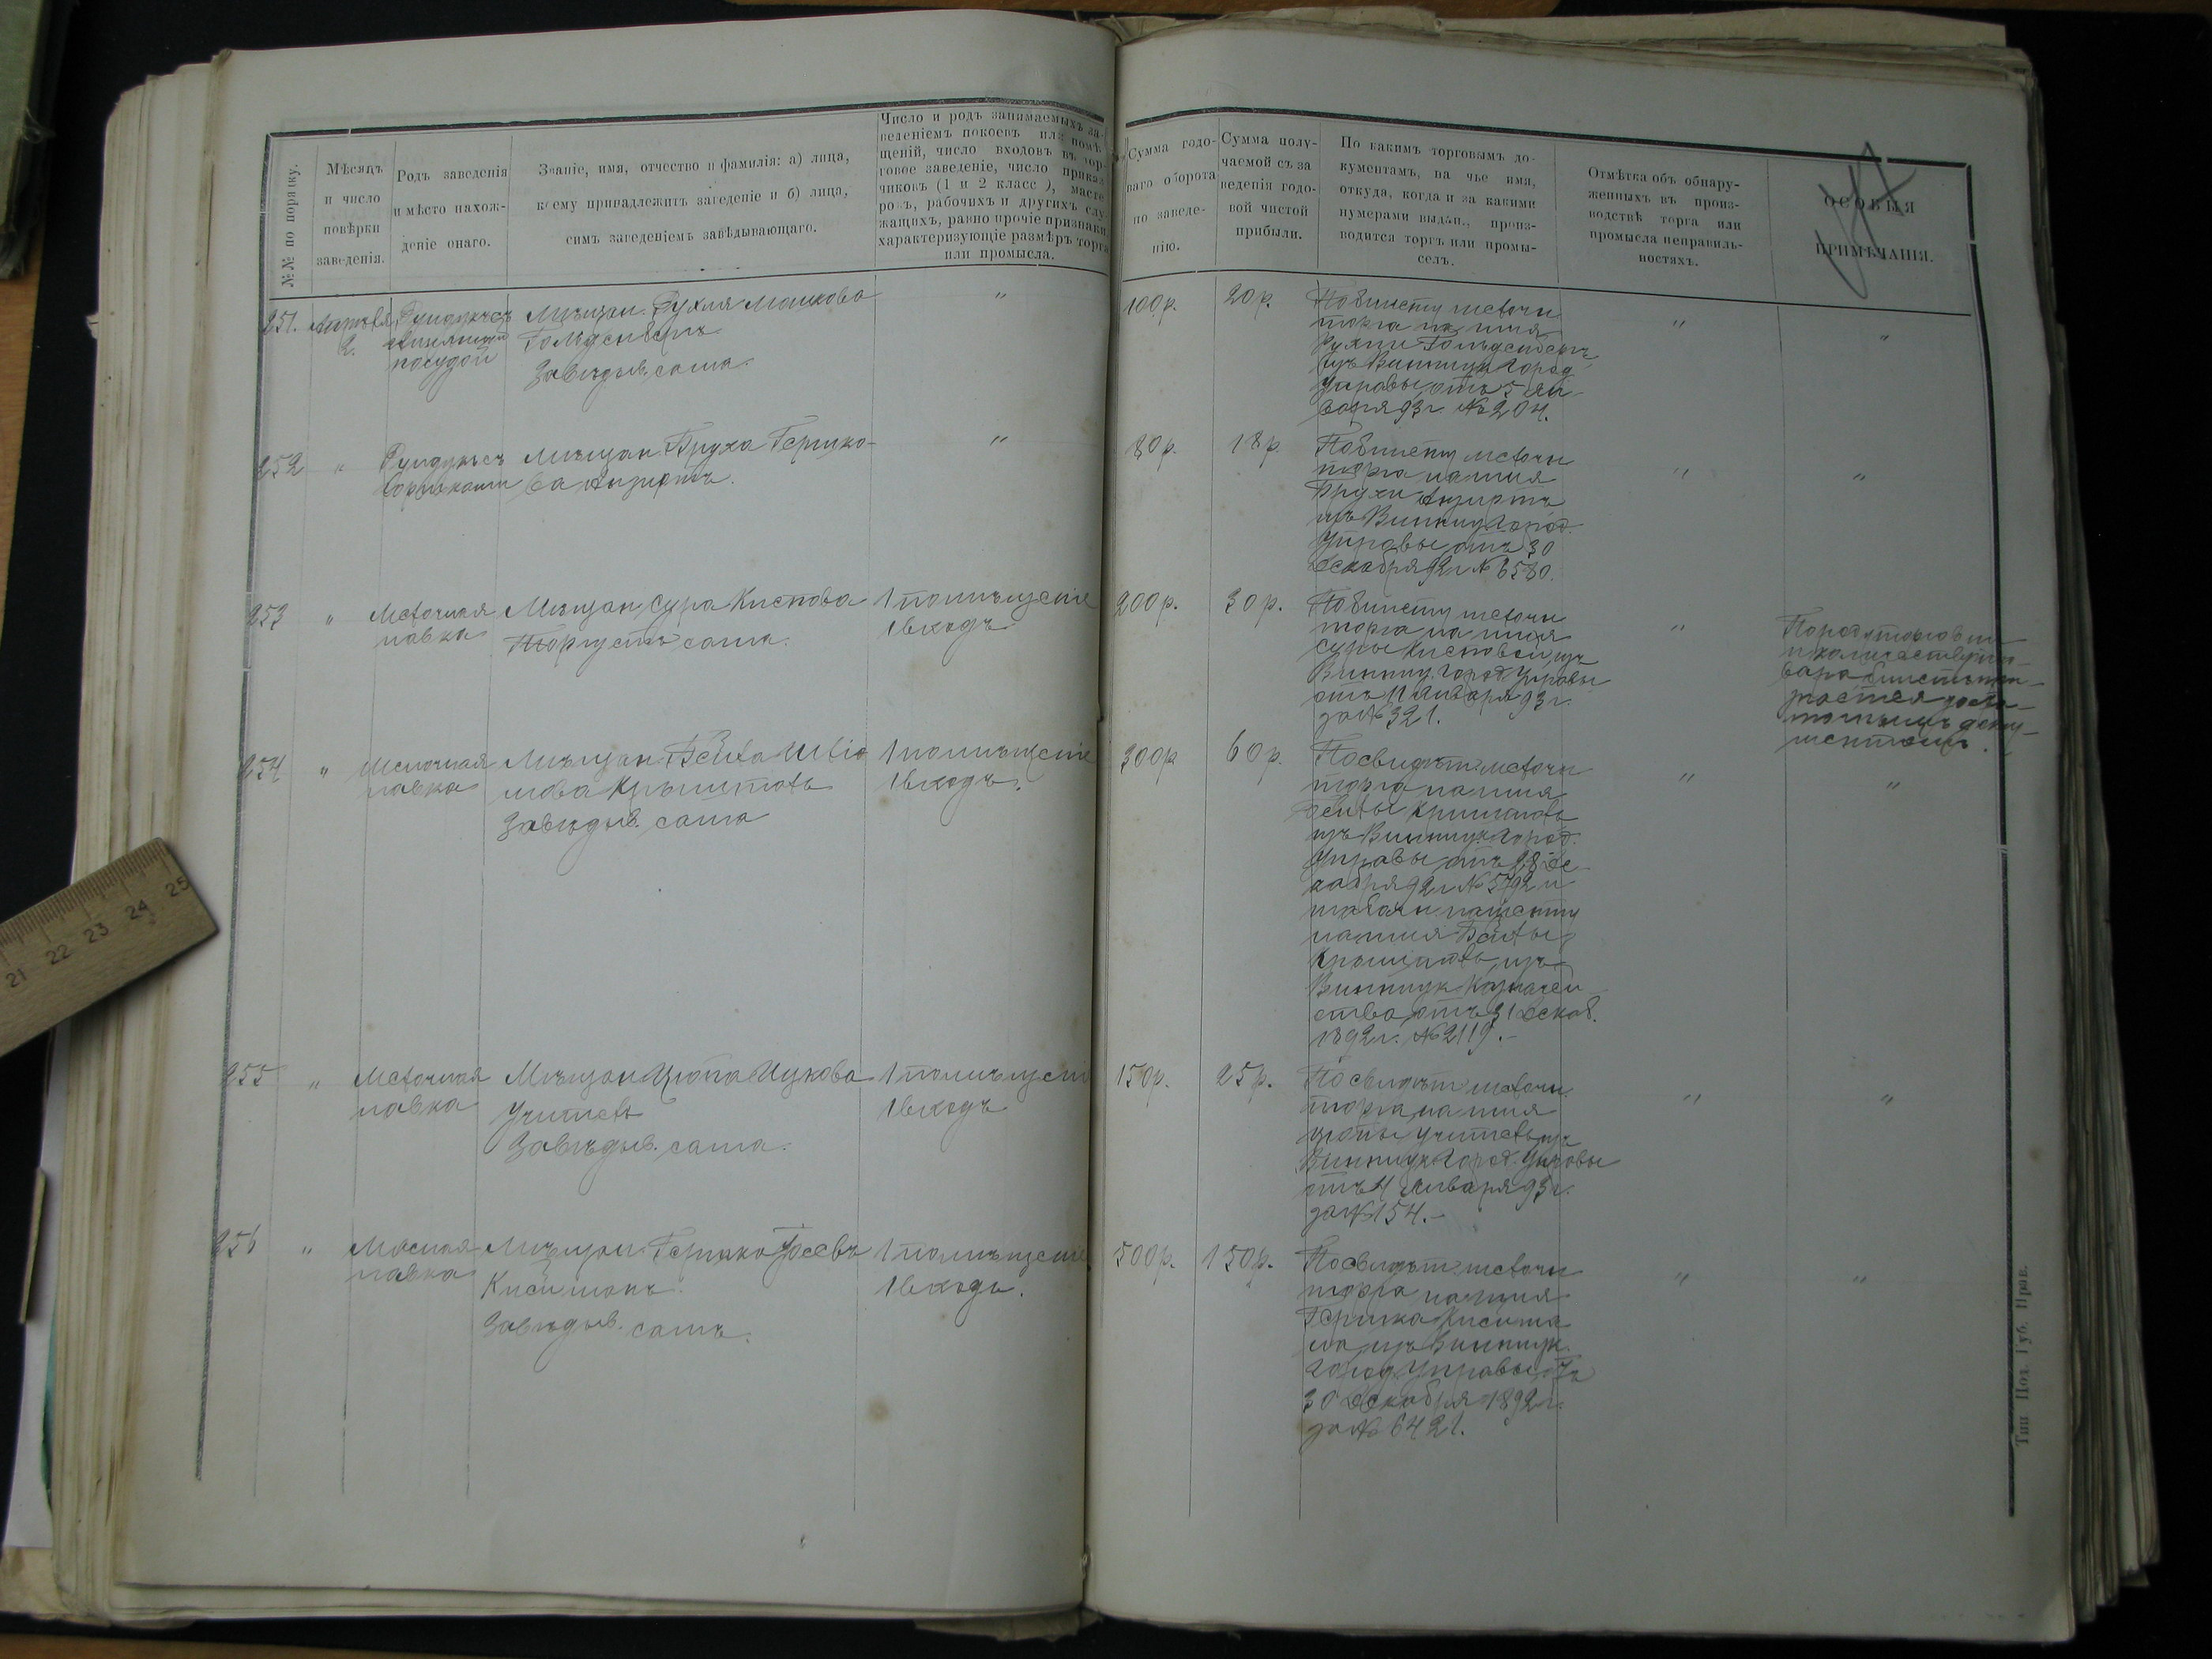 №№ по порядку.
Мѣсяцъ
и число
повѣрки
заведенія.
Родъ заведенія
и мѣсто нахож-
деніе онаго.
Званіе, имя, отчество и фамилія: а) лица,
коему принадлежитъ заведеніе и б) лица,
симъ заведеніемъ завѣдывающаго.
Число и родъ занимаемыхъ за-
веденіемъ покоевъ или помѣ-
щеній, число входовъ въ тор-
говое заведеніе, число приказ
чиковъ (1 и 2 класс ), масте
ровъ, рабочихъ и другихъ слу
жащихъ, равно прочіе признаки
характеризующіе размѣръ торга
или промысла.
Сумма годо-
ваго оборота
по заведе-
нію.
Сумма полу-
чаемой съ за
веденія годо-
вой чистой
прибыли.
По какимъ торговымъ до-
кументамъ, на чье имя,
откуда, когда и за какими
нумерами выдан., произ-
водится торгъ или промы-
селъ.
Отмѣтка объ обнару-
женныхъ въ произ-
водствѣ торга или
промысла неправиль-
ностяхъ.
ОСОБЫЯ
ПРИМѢЧАНІЯ.
251.
2.
Рундукъ съ
посудой
Мѣщан. Рухля Мошкова
Гольденбергъ
Завѣдыв. сама.
"
100р.
20р.
По билету мелочн
торга на имя
Рухли Гольденбергъ
изъ Винницк Город
Управы отъ 5 Ян-
варя 93 г. № 204.
"
"
252
"
Рундукъ съ
Мѣщан. Бруха Гершко-
ва
"
80р.
18р.
По билету мелочн
торга на имя
Брухи
изъ Винниц. Город.
Управы отъ 30
Декабря 92 г № 6580.
"
"
253
"
Мелочная
лавка
Мѣщан. Сура Кислова
Торгуетъ сама.
1 помѣщеніе
1 входъ
200р.
30р.
По билету мелочн
торга на имя
Суры Кисловой изъ
Винниц. Город. Управы
отъ 11 Января 93 г.
за № 321.
"
По роду торговли
и количеству то-
вара билетъ при-
знается доста-
точнымъ доку-
ментомъ.
254
"
Мелочная
лавка
Мѣщан. Бейла
мова
Завѣдыв. сама
1 помѣщеніе
1 входъ.
300р
60р.
По свидѣт. мелочн
торга на имя
Бейлы
изъ Винницк. Город.
Управы отъ 28 Де-
кабря 92 г № 5792 и
табачн. патенту
на имя Бейлы
изъ
Винницк. Казначей
ства отъ 31 Декаб.
1892 г. № 2119.-
"
"
255
"
Мелочная
лавка
Мѣщан. Ицкова
Учитель
Завѣдыв. сама.
1 помѣщені
1 входъ
150р.
25р.
По свидѣт. мелочн.
торга на имя
Учитель изъ
Винницк. Город. Управы
отъ 4 Января 93 г.
за № 154.-
"
"
256
"
Мясная
лавка
Мѣщан. Гершко
Завѣдыв. самъ.
1 помѣщеніе
1 входъ.
500р.
150р.
По свидѣт. мелочн
торга на имя
Гершка
изъ Винницк.
Город. Управы отъ
30 Декабря 1892 г.
за № 6421.
"
"
Тип Под. Губ. Прав.